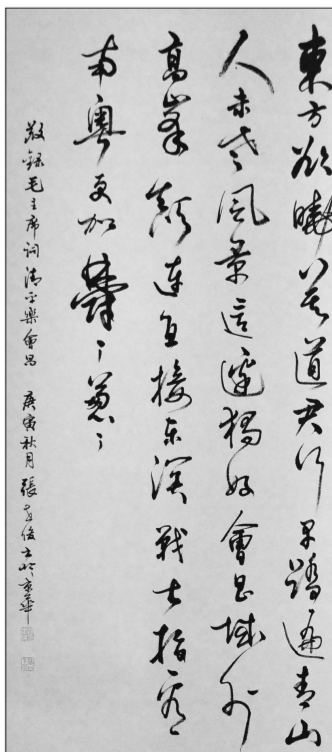 東方欲曉莫道君行早踏遍青山
人未老風景這邊獨好會昌城外
高峯顛連直接東溟戰士指看
南粵更加鬱〻蔥〻
敬錄毛主席詞清平樂會昌 庚寅秋月張俊書於京華